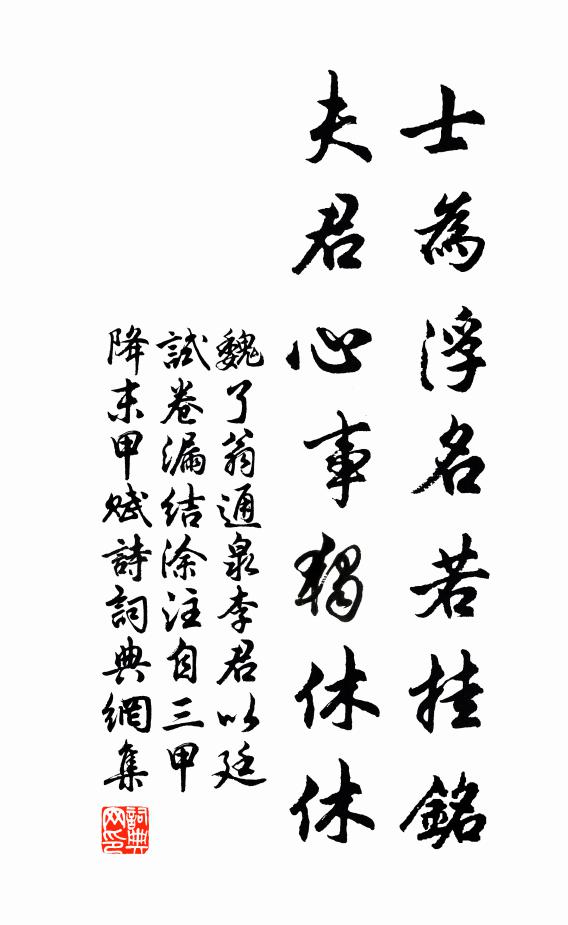 士為浮名若挂銘
夫君心事獨休休
魏了翁通泉李君以廷
試卷漏結涂注自三甲
降末甲賦詩詞典網集
詞典
网印